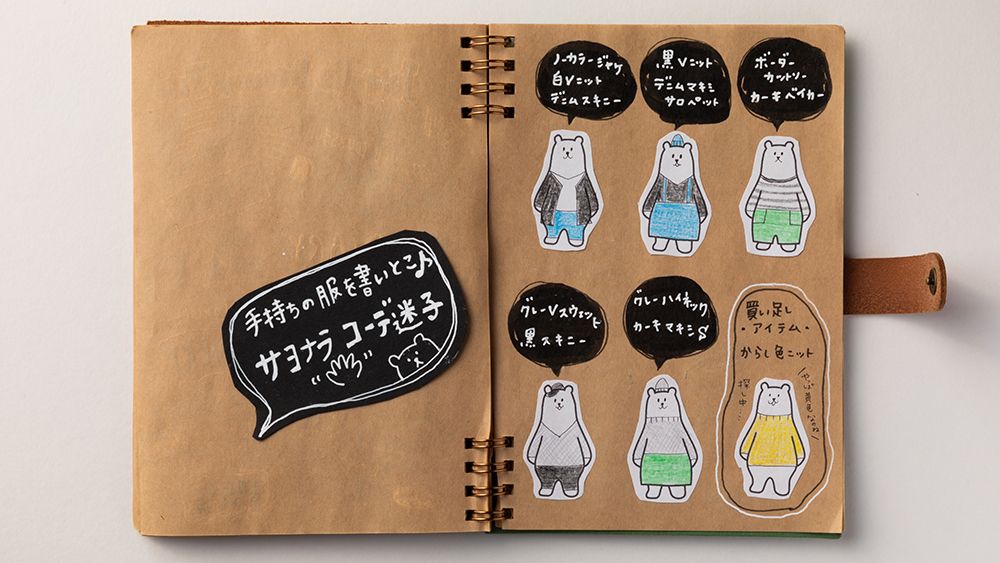 手持ちの服を書いとこ♪
サヨナラ コーデ迷子
ノーカラージャケ
白Vニット
デニムスキニー
黒Vニット
デニムマキシ
サロペット
ボーダー
カットソー
カーキベイカー
グレーVスウェット
黒スキニー
グレーハイネック
カーキマキシ
買い足し
・アイテム・
からし色ニット
探し中…